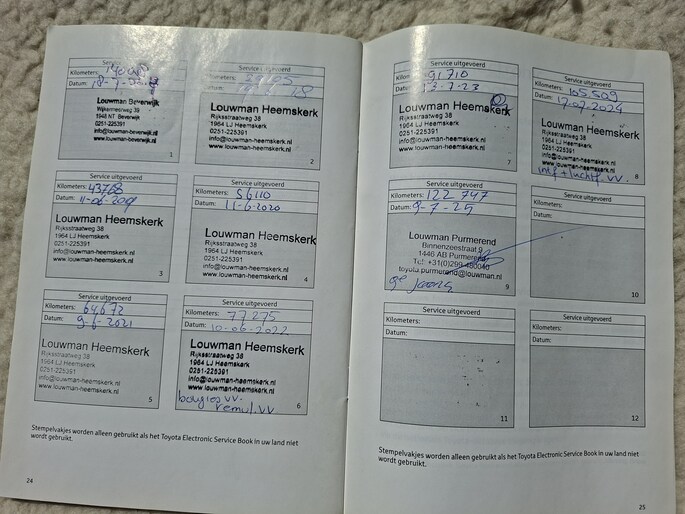 Service uitgevoerd
Kilometers:
Datum: 18-7-2017
Louwman Beverwijk
Wijkermeerweg 39
1948 NT Beverwijk
0251-225391
info@louwman-beverwijk.nl
www.louwman-beverwijk.nl
1
Service uitgevoerd
Kilometers:
Datum:
Louwman Heemskerk
Rijksstraatweg 38
1964 LJ Heemskerk
0251-225391
info@louwman-heemskerk.nl
www.louwman-heemskerk.nl
2
Service uitgevoerd
Kilometers: 43768
Datum: 11-06-2019
Louwman Heemskerk
Rijksstraatweg 38
1964 LJ Heemskerk
0251-225391
info@louwman-heemskerk.nl
www.louwman-heemskerk.nl
3
Service uitgevoerd
Kilometers: 56110
Datum: 11-6-2020
Louwman Heemskerk
Rijksstraatweg 38
1964 LJ Heemskerk
0251-225391
info@louwman-heemskerk.nl
www.louwman-heemskerk.nl
4
Service uitgevoerd
Kilometers: 64,672
Datum: 9-6-2021
Louwman Heemskerk
Rijksstraatweg 38
1964 LJ Heemskerk
0251-225391
info@louwman-heemskerk.nl
www.louwman-heemskerk.nl
5
Service uitgevoerd
Kilometers: 77275
Datum: 10-06-2022
Louwman Heemskerk
Rijksstraatweg 38
1964 LJ Heemskerk
0251-225391
info@louwman-heemskerk.nl
www.louwman-heemskerk.nl
bougies vv.
remvl. vv
6
Stempelvakjes worden alleen gebruikt als het Toyota Electronic Service Book in uw land niet
wordt gebruikt.
24
Service uitgevoerd
Kilometers: 91710
Datum: 13-7-23
Louwman Heemskerk
Rijksstraatweg 38
1964 LJ Heemskerk
0251-225391
info@louwman-heemskerk.nl
www.louwman-heemskerk.nl
7
Service uitgevoerd
Kilometers: 105.509
Datum: 17-07-2024
Louwman Heemskerk
Rijksstraatweg 38
1964 LJ Heemskerk
0251-225391
info@louwman-heemskerk.nl
www.louwman-heemskerk.nl
8
Service uitgevoerd
Kilometers: 122 747
Datum: 9-7-25
Louwman Purmerend
Binnenzeestraat 9
1446 AB Purmerend
Tel: +31(0)299-480040
toyota.purmerend@louwman.nl
9
Service uitgevoerd
Kilometers:
Datum:
10
Service uitgevoerd
Kilometers:
Datum:
11
Service uitgevoerd
Kilometers:
Datum:
12
Stempelvakjes worden alleen gebruikt als het Toyota Electronic Service Book in uw land niet
wordt gebruikt.
25